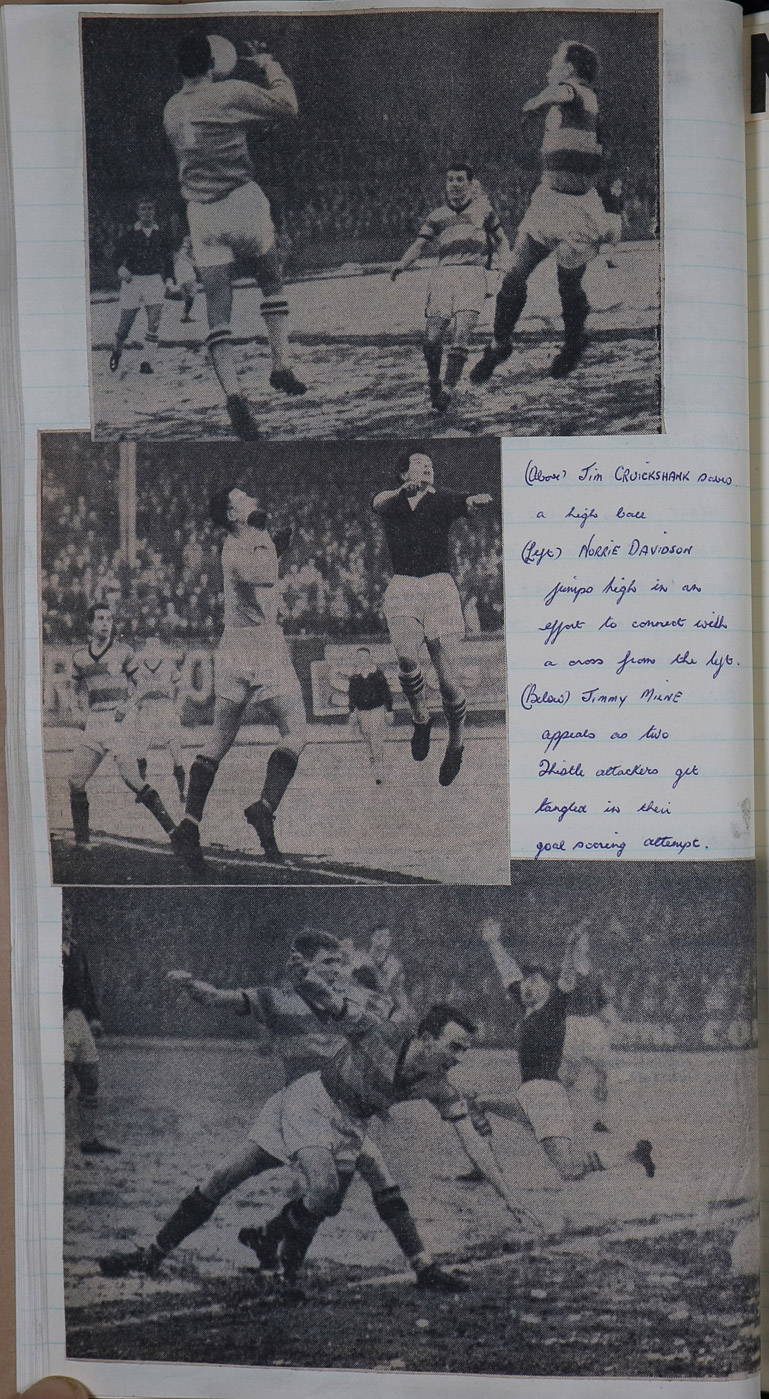 (Above) Jim CRUICKSHANK saves
a high ball
(Left) NORRIE DAVIDSON
jumps high in an
effort to connect with
a cross from the left.
(Below) Jimmy MILNE
appeals as two
Thistle attackers get
tangled in their
goal scoring attempt.